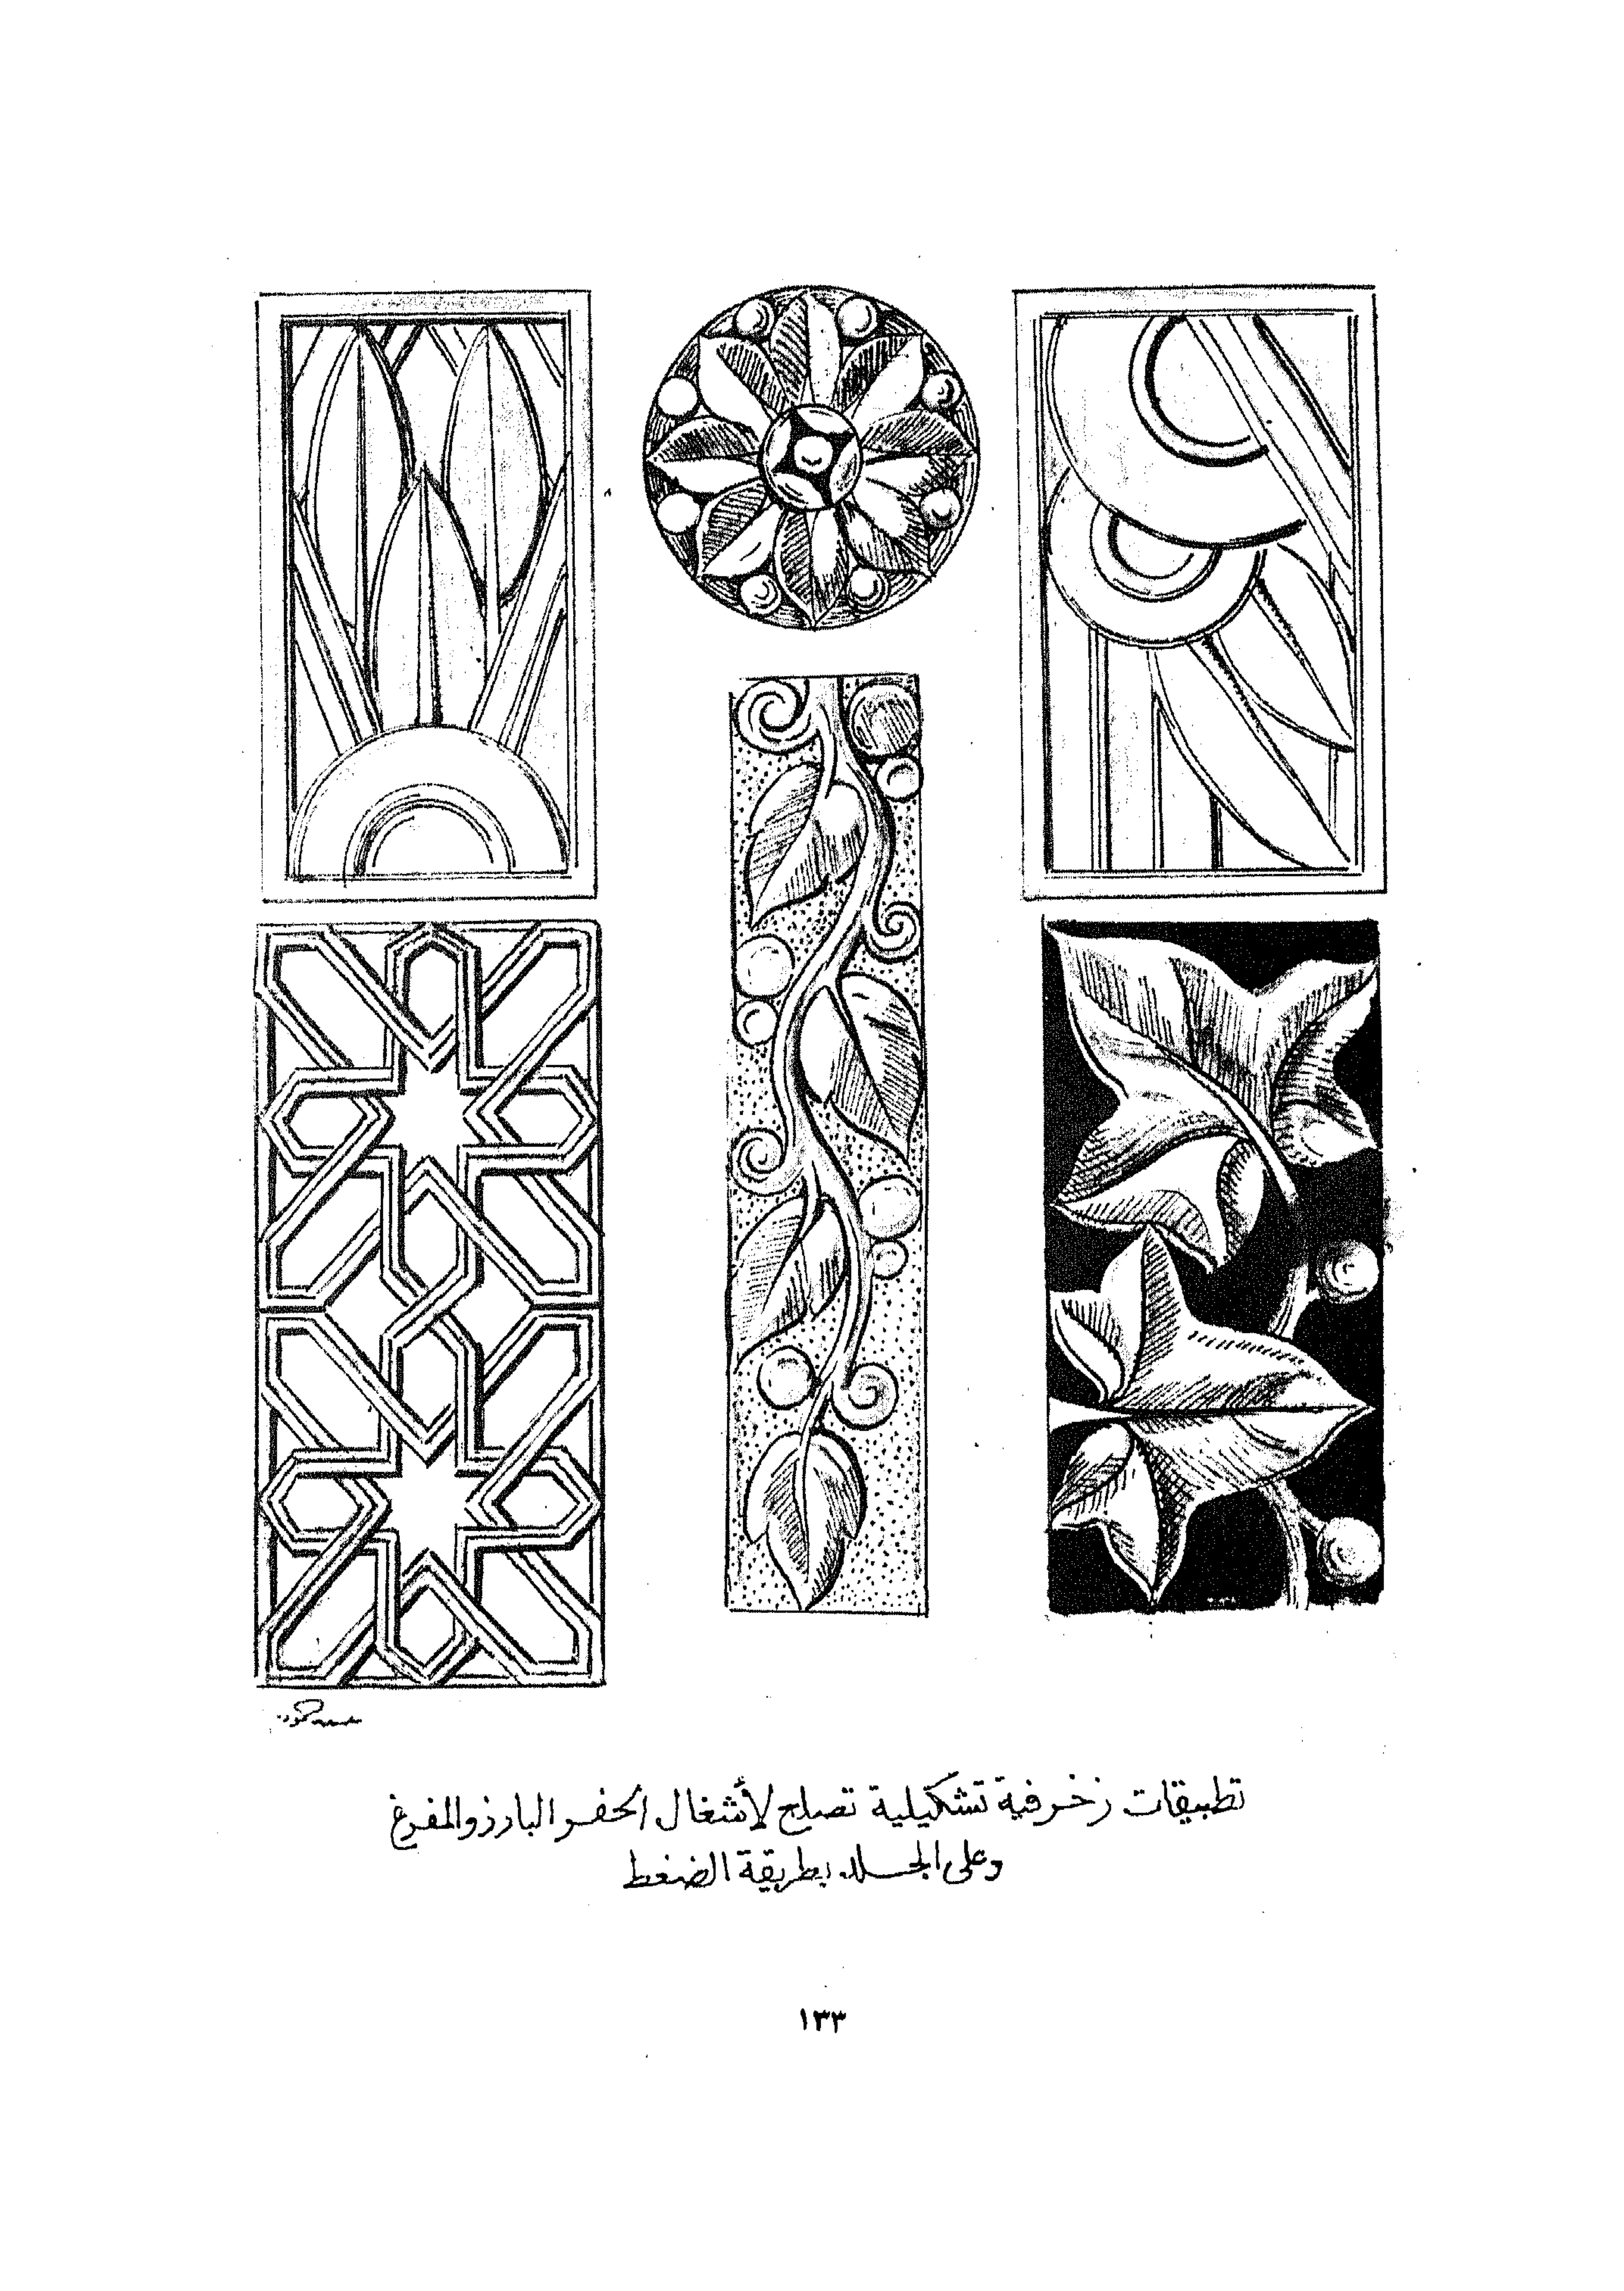 تطبيقات زخرفية تشكيلية تصلح لأشغال الحفر البارز والمفرغ
وعلى الجلد بطريقة الضغط
١٣٣